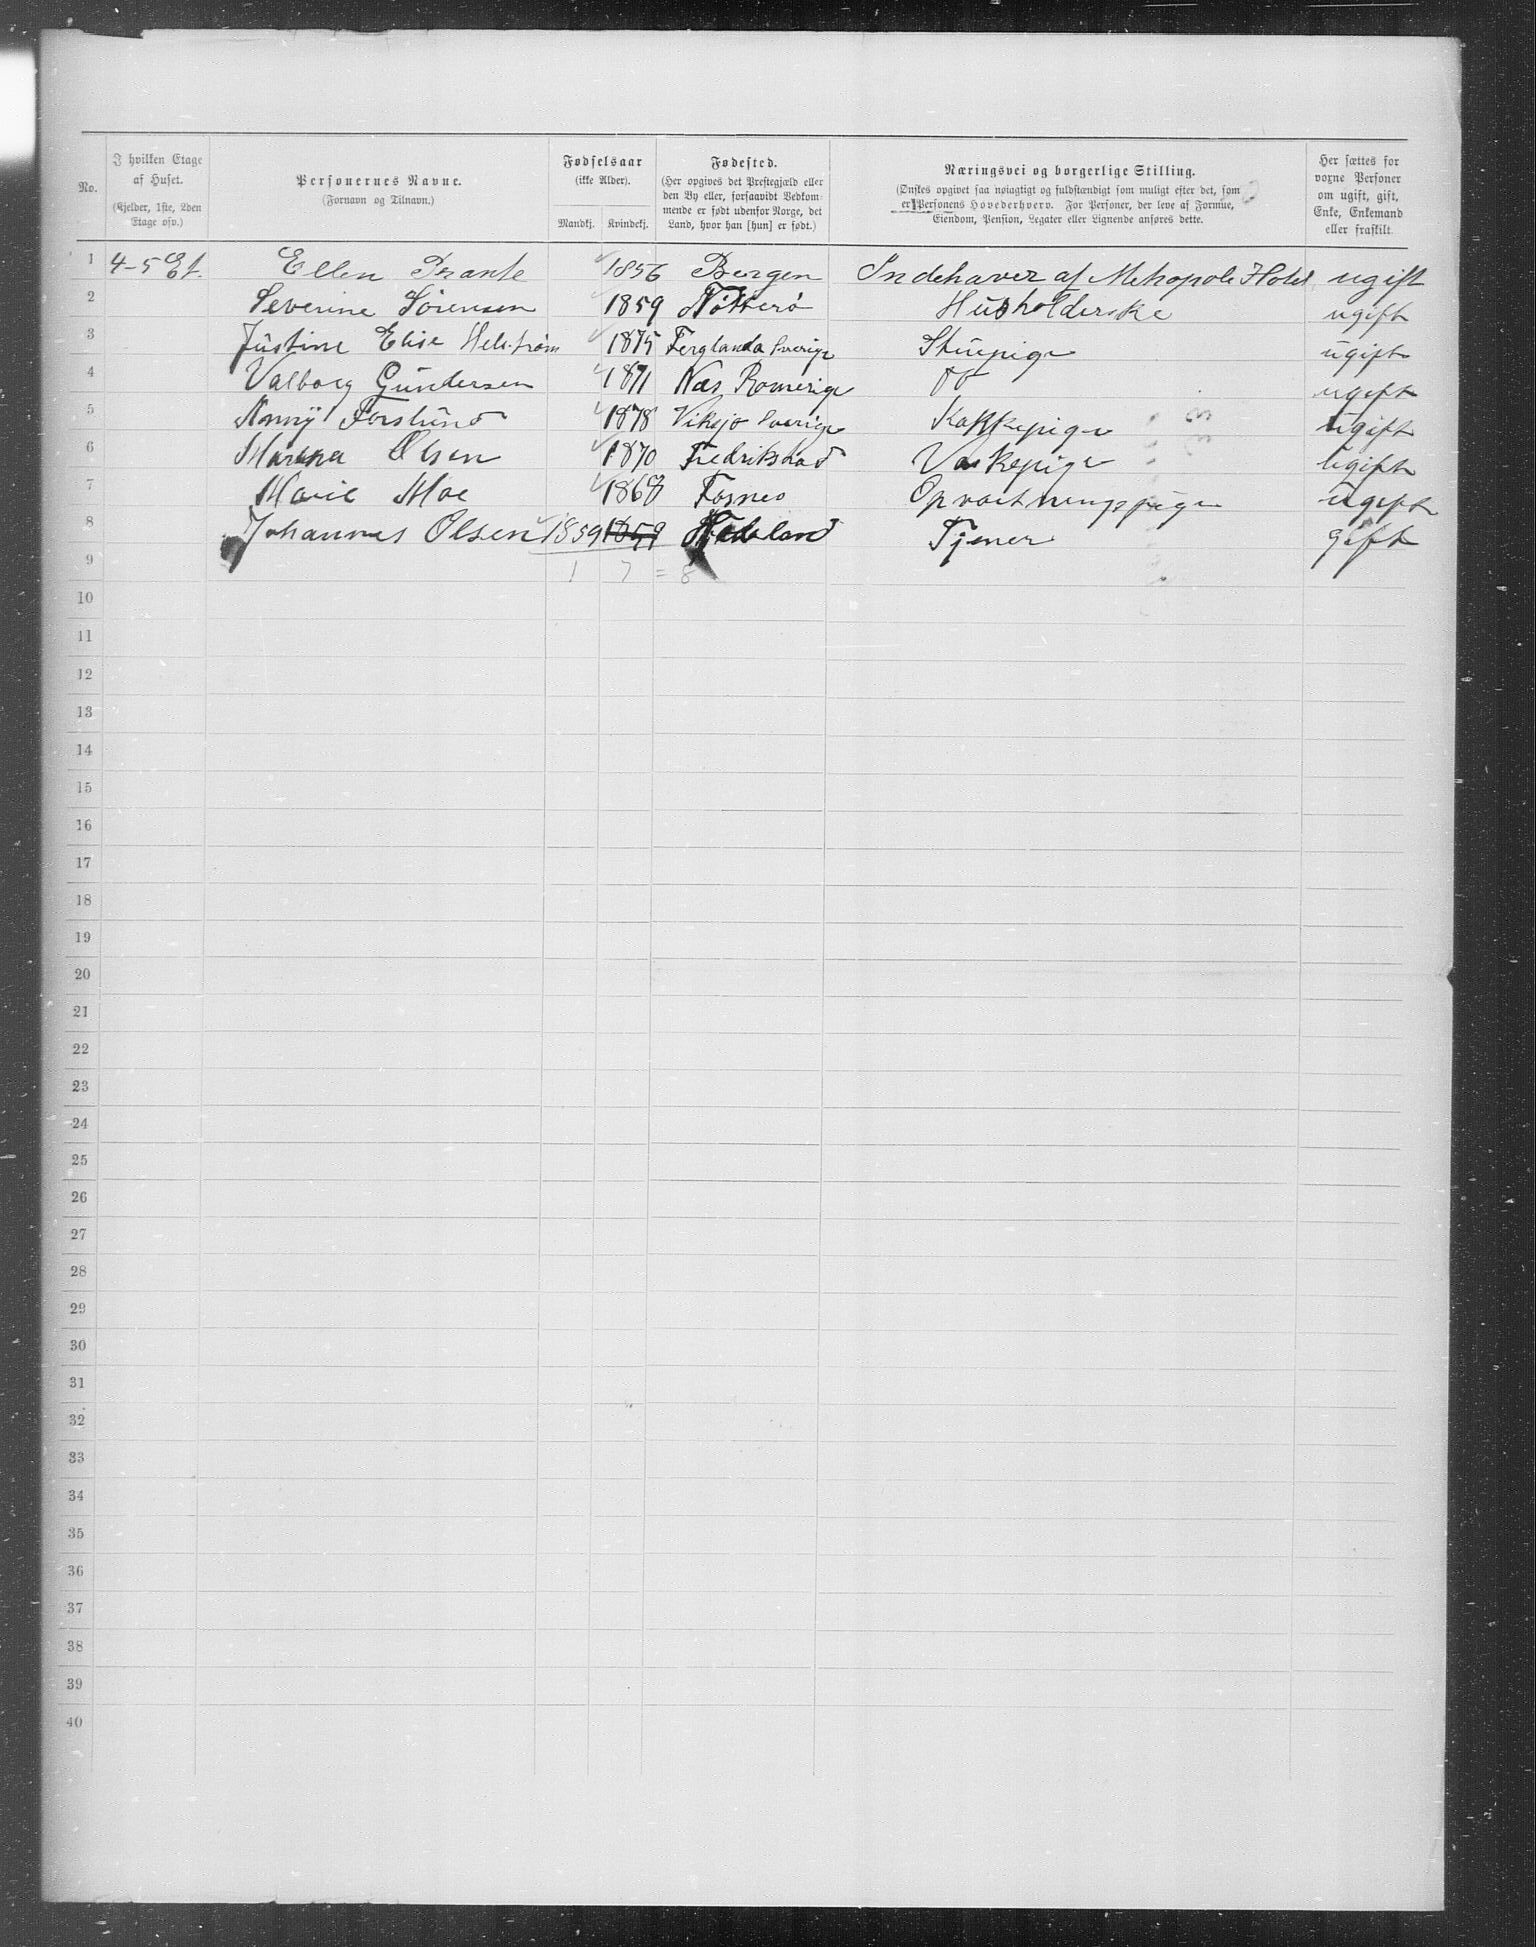 No.
I hvilken Etage af Huset. (Kjelder, 1ste, 2den Etage osv.)
Personernes Navne. (Fornavn og Tilnavn.)
Fødselsaar (ikke Alder). Mandkj. Kvindekj.
Fødested. (Her opgives det Prestegjæld eller den By eller, forsaavidt Vedkommende er født udenfor Norge, det Land, hvor han [hun] er født.)
Næringsvei og borgerlige Stilling. (Ønskes opgivet saa nøiagtigt og fuldstændigt som muligt efter det, som er Personens Hovederhverv. For Personer, der leve af Formue, Eiendom, Pension, Legater eller Lignende anføres dette.
Her sættes for voxne Personer om ugift, gift, Enke, Enkemand eller fraskilt.
1 4-5 Et. Ellen 1856 Bergen Indehaver af Metropole Hotel ugift
2 Severine Sørensen 1859 Nøtterø Husholderske ugift
3 Justine Elise Helstrøm 1875 Ferglanda Sverige Stuepige ugift
4 Valborg Gundersen 1871 Næs Romerige Do ugift
5 Forslund 1878 Viksjo Sverige Kokkepige ugift
6 Olsen 1870 Fredrikstad Vaskepige ugift
7 Marie Moe 1868 Fosnes Opvartningspige ugift
8 Johannes Olsen 1859 1859 Hadeland Tjener gift
9 1 7 = 8
10
11
12
13
14
15
16
17
18
19
20
21
22
23
24
25
26
27
28
29
30
31
32
33
34
35
36
37
38
39
40